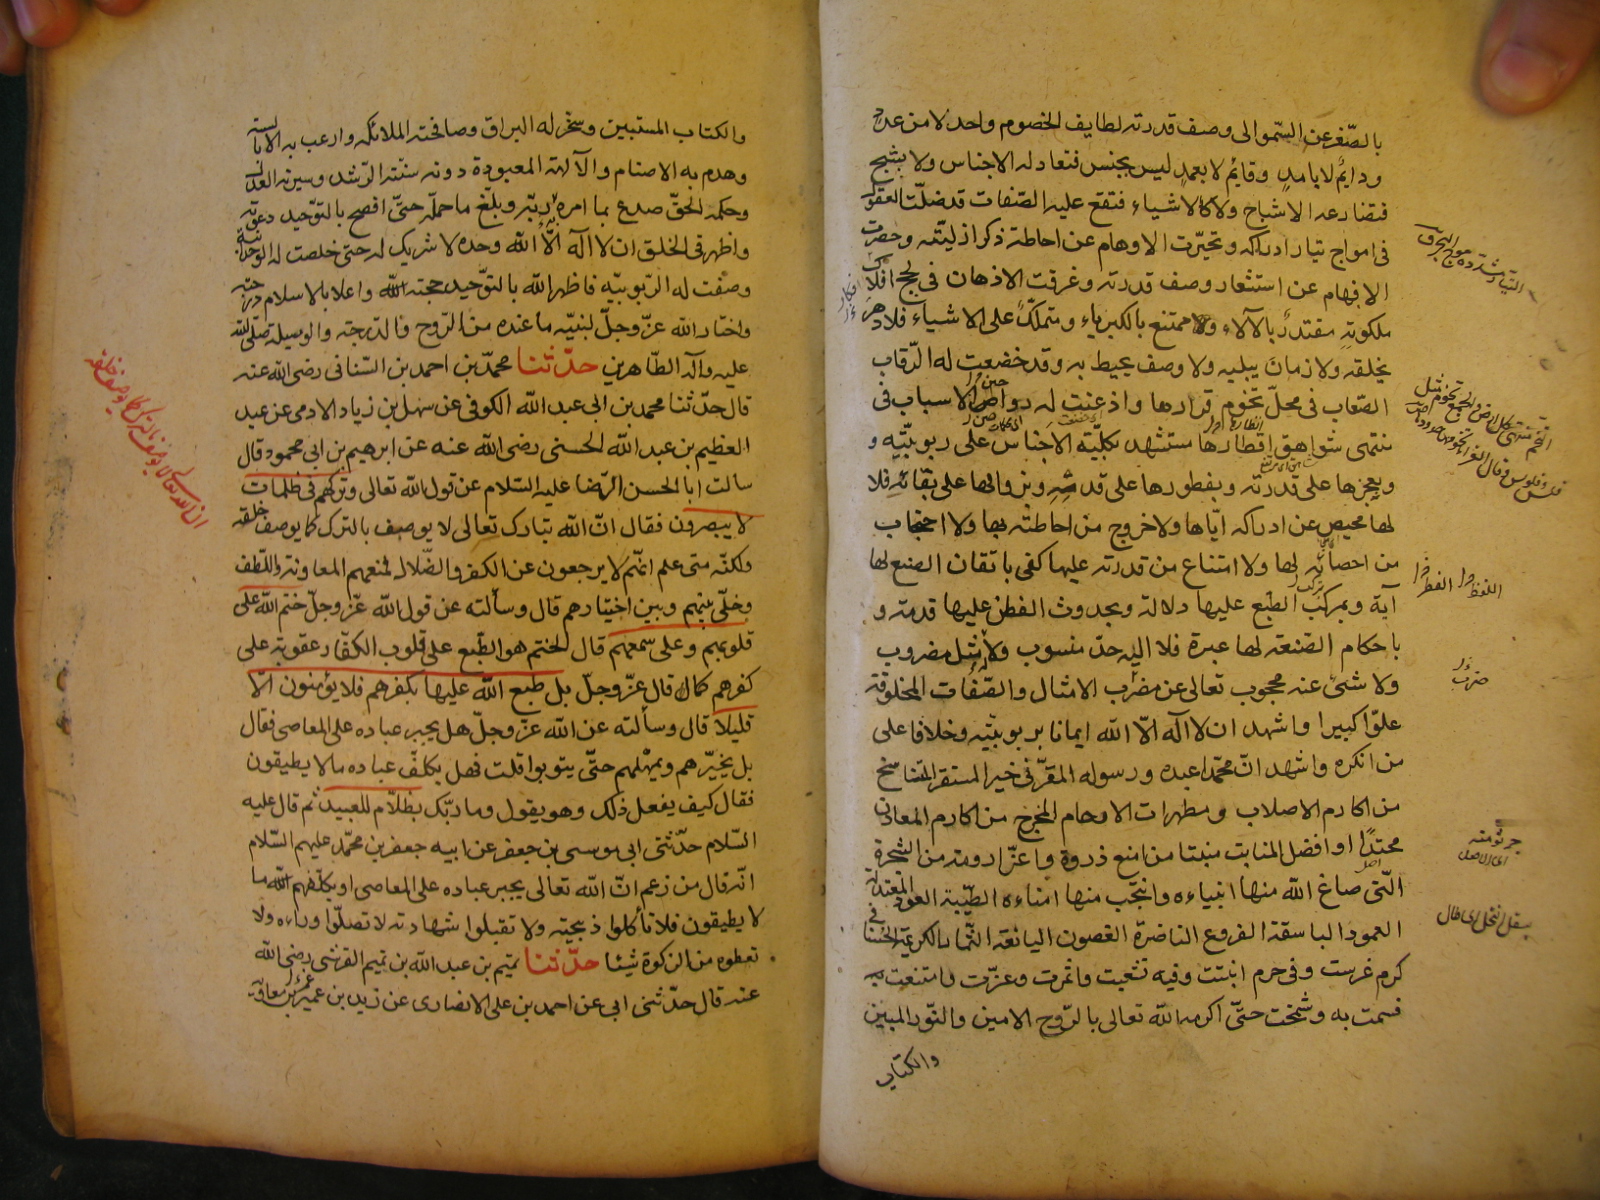 بالصّغر عن السّمو الى وصف قدرته لطايف الخصوم واحد لا من عدد
ودايمٌ لا بامدٍ وقايمٌ لا بعمدٍ ليس بجنس فتعادله الاجناس ولا بشبح
فتضارعه الاشباح ولا كالاشياء فتقع عليه الصّفات قد ضلّت العقول
فى امواج تيار ادراكه وتحيّرت الاوهام عن احاطة ذكر ازليّته وحصرت
الافهام عن استشعار وصف قدرته وغرقت الاذهان فى لجج افلاك
ملكوته مقتدرٌ بالآلاء وممتنع بالكبرياء ومتملّك على الاشياء فلا دهر
يخلقه ولا زمان يبليه ولا وصف يحيط به وقد خضعت له الرّقاب
الصّعاب فى محلّ تخوم قرارها واذعنت له رواصن الاسباب فى
منتهى شواهق اقطارها مستشهد بكليّة الاجناس على ربوبيّته و
بعجزها على قدرته وبفطورها على قدمته وبزوالها على بقائه فلا
لها محيص عن ادراكه ايّاها ولا خروج من احاطته بها ولا احتجاب
من احصائه لها ولا امتناع من قدرته عليها كفى باتقان الصنع لها
آية وبمركب الطبع عليها دلالة وبحدوث الفطن عليها قدمة و
باحكام الصّنعة لها عبرة فلا اليه حدّ منسوب ولا مثل مضروب
ولا شئ عنه محجوب تعالى عن ضرب الامثال والصّفات المخلوقة
علوّا كبيرا واشهد ان لا آله الّا الله ايمانا بربوبيّته وخلافا على
من انكره واشهد انّ محمّدا عبده ورسوله المقرّ فى خير مستقر المتناسخ
من اكارم الاصلاب ومطهرات الارحام المخرج من اكارم المعادن
محتدًا وافضل المنابت منبتا من امنع ذروة واعزّ ارومة من الشجرة
الّتى صاغ الله منها انبياءه وانتجب منها امناءه الطيّبة العود المعتدلة
العمود الباسقة الفروع الناضرة الغصون اليانعة الثمار الكريمة الحشا فى
كرم غرست وفى حرم انبتت وفيه تشعبت واثمرت وعزّت وامتنعت به
فسمت به وشمخت حتّى اكرمه الله تعالى بالرّوح الامين والنّور المبين
والكتاب
جرثومته
اى الاصل
والكتاب المستبين وسخّر له البراق وصافحته الملائكه وارعب به الابالسة
وهدم به الاصنام والآلهة المعبودة دونه سنّته الرّشد وسيرته العدل
وحكمه الحقّ صدع بما امره ربّه وبلّغ ما حمّله حتّى افصح بالتوّحيد دعوته
واظهر فى الخلق ان لا اله الّا الله وحده لا شريك له حتى خلصت له الوحدانية
وصفت له الرّبوبيّة فاظهر الله بالتوّحيد حجته واعلا بالاسلام درجته
واختار الله عزّ وجلّ لنبيّه ما عنده من الرّوح والدّرجة والوسيلة صلّى الله
عليه وآله الطّاهرين حدّثنا محمّد بن احمد بن السّنانى رضى الله عنه
قال حدّثنا محمد بن ابى عبد الله الكوفى عن سهل بن زياد الادمى عن عبد
العظيم بن عبد الله الحسنى رضى الله عنه عن ابرهيم بن ابى محمود قال
سالت ابا الحسن الرّضا عليه السّلام عن قول الله تعالى وتركهم فى ظلمات
لا يبصرون فقال انّ الله تبارك تعالى لا يوصف بالترك كما يوصف خلقه
ولكنّه متى علم انّهم لا يرجعون عن الكفر والضّلال منعهم المعاونة واللّطف
وخلّى بينهم وبين اختيارهم قال وسألته عن قول الله عزّ وجلّ ختم الله على
قلوبهم وعلى سمعهم قال الختم هو الطّبع على قلوب الكفّار عقوبة على
كفرهم كما قال عزّ وجلّ بل طبع الله عليها بكفرهم فلا يؤمنون الّا
قليلا قال وسألته عن الله عزّ وجلّ هل يجبر عباده على المعاصى فقال
بل يخيّرهم ويمهلهم حتّى يتوبوا قلت فهل يكلّف عباده ما لا يطيقون
فقال كيف يفعل ذلك وهو يقول وما ربّك بظلّام للعبيد ثم قال عليه
السّلام حدّثنى ابى موسى بن جعفر عن ابيه جعفر بن محمّد عليهم السّلام
انّه قال من زعم انّ الله تعالى يجبر عباده على المعاصى او يكلّفهم ما
لا يطيقون فلا تأكلوا ذبيحته ولا تقبلوا شهادته لا تصلّوا وراءه ولا
تعطوه من الزكوة شيئا حدّثنا تميم بن عبد الله بن تميم القرشى رضى الله
عنه قال حدّثنى ابى عن احمد بن على الانصارى عن زيد بن عمير بن معاوية